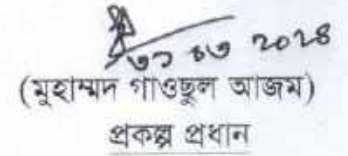 ২০২৪
(মুহাম্মদ গাওছুল আজম)
প্রকল্প প্রধান